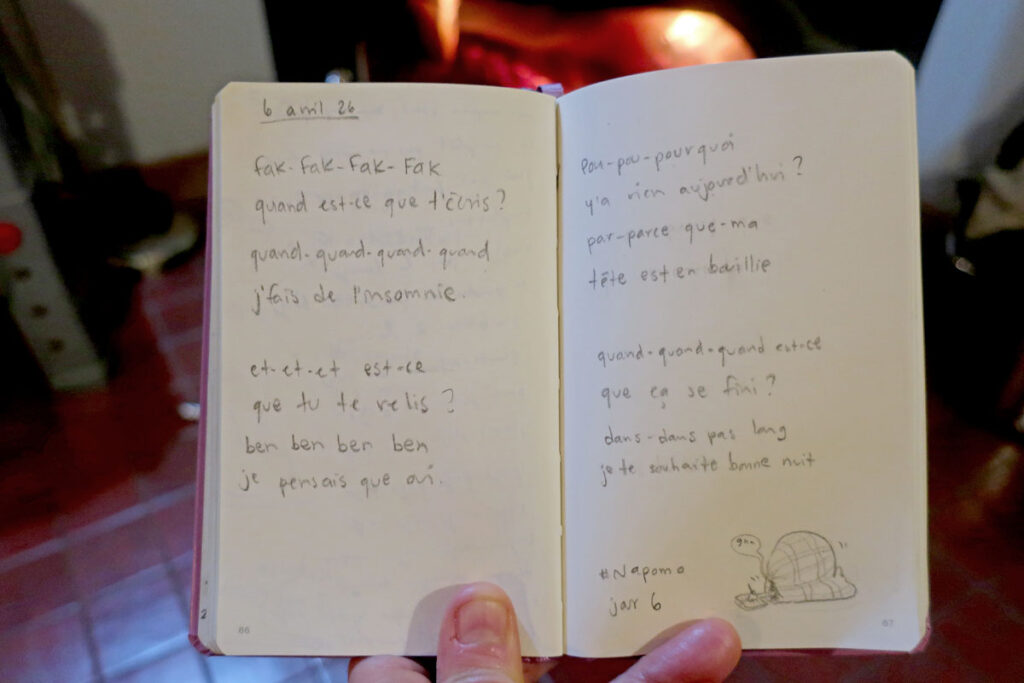 6 avril 26
Fak-Fak-Fak-Fak
quand est-ce que t'écris?
quand-quand-quand-quand
j'fais de l'insomnie.
et-et-et est-ce
que tu te relis?
ben ben ben ben
je pensais que oui.
86
Pou-pou-pourquoi
y'a rien aujourd'hui?
par-parce que-ma
tête est en bouillie
quand-quand-quand est-ce
que ça se fini?
dans-dans pas long
je te souhaite bonne nuit
#Napomo
jour 6
87